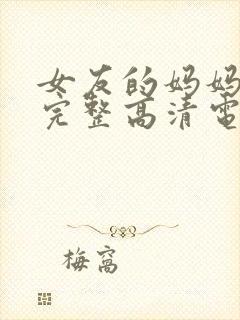 女友的妈妈
完整高清电
梅窝